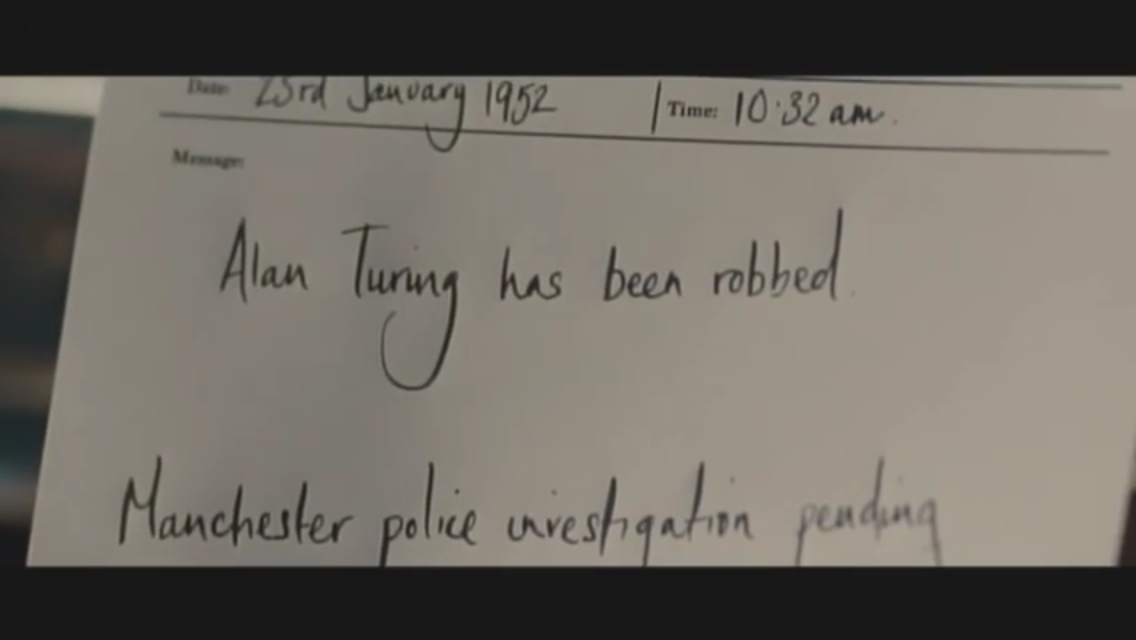 Date: 23rd January 1952 Time: 10·32 am.
Message:
Alan Turing has been robbed.
Manchester police investigation pending